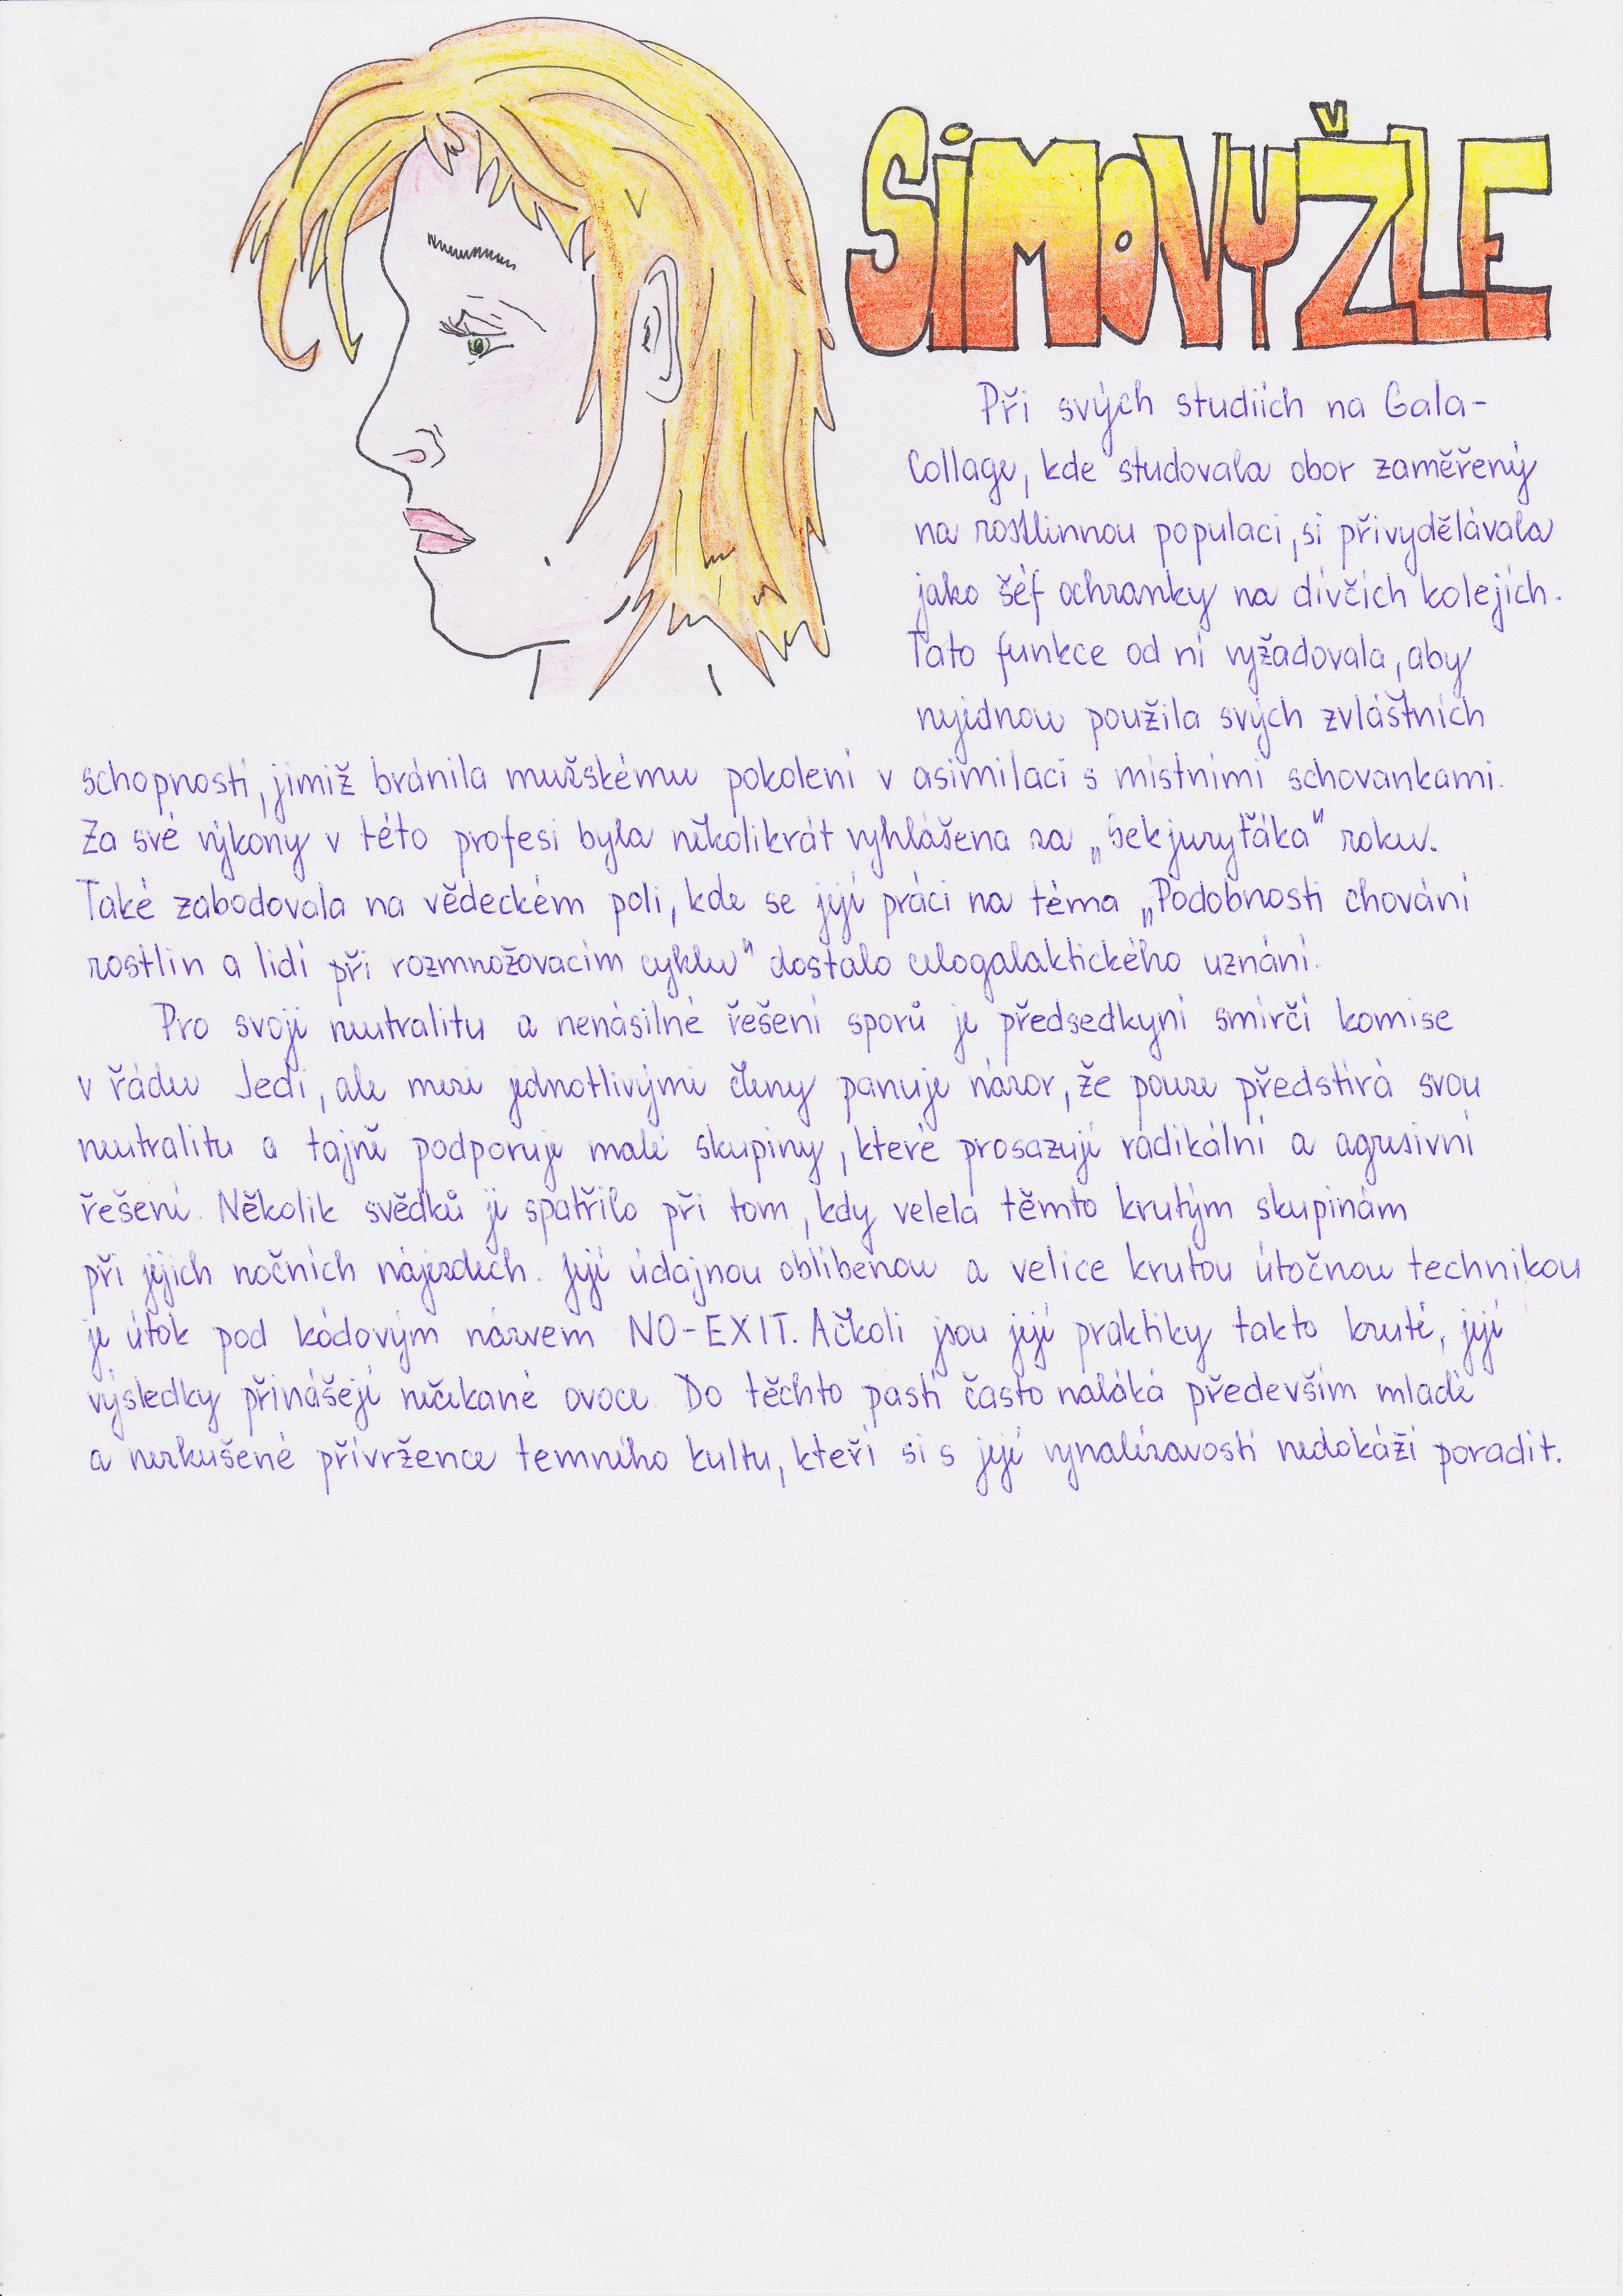 SIMOVYŽLE
Při svých studiích na Gala-
Collage, kde studovala obor zaměřený
na rostlinnou populaci, si přivydělávala
jako šéf ochranky na dívčích kolejích.
Tato funkce od ní vyžadovala, aby
nejednou použila svých zvláštních
schopností, jimiž bránila mužskému pokolení v asimilaci s místními schovankami.
Za své výkony v této profesi byla několikrát vyhlášena za „Sekjuryťáka" roku.
Také zabodovala na vědeckém poli, kde se její práci na téma „Podobnosti chování
rostlin a lidí při rozmnožovacím cyklu" dostalo celogalaktického uznání.
Pro svoji neutralitu a nenásilné řešení sporů je předsedkyní smírčí komise
v řádu Jedi, ale mezi jednotlivými členy panuje názor, že pouze předstírá svou
neutralitu a tajně podporuje malé skupiny, které prosazují radikální a agresivní
řešení. Několik svědků ji spatřilo při tom, kdy velela těmto krutým skupinám
při jejich nočních nájezdech. Její údajnou oblíbenou a velice krutou útočnou technikou
je útok pod kódovým názvem NO-EXIT. Ačkoli jsou její praktiky takto kruté, její
výsledky přinášejí nečekané ovoce. Do těchto pastí často naláká především mladé
a nezkušené přívržence temného kultu, kteří si s její vynalézavostí nedokáží poradit.